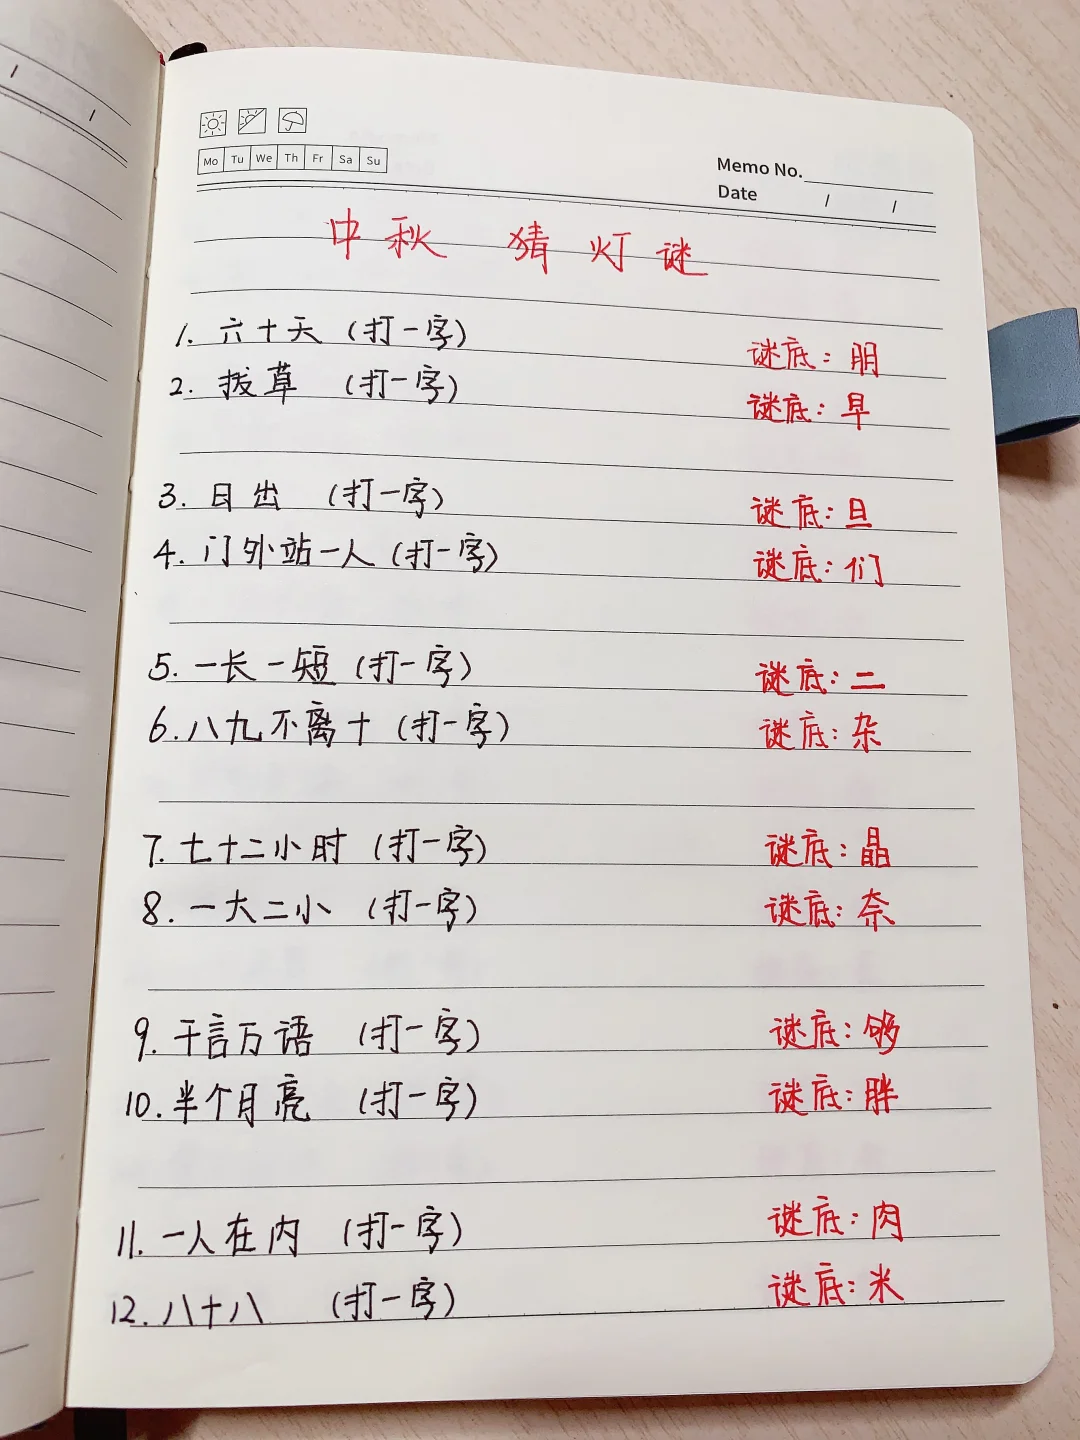 Mo Tu We Th Fr Sa Su
Memo No.
Date / /
中秋 猜灯谜
1. 六十天 (打一字) 谜底: 朋
2. 拔草 (打一字) 谜底: 早
3. 日出 (打一字) 谜底: 旦
4. 门外站一人 (打一字) 谜底: 们
5. 一长一短 (打一字) 谜底: 二
6. 八九不离十 (打一字) 谜底: 杂
7. 七十二小时 (打一字) 谜底: 晶
8. 一大二小 (打一字) 谜底: 奈
9. 千言万语 (打一字) 谜底: 够
10. 半个月亮 (打一字) 谜底: 胖
11. 一人在内 (打一字) 谜底: 肉
12. 八十八 (打一字) 谜底: 米